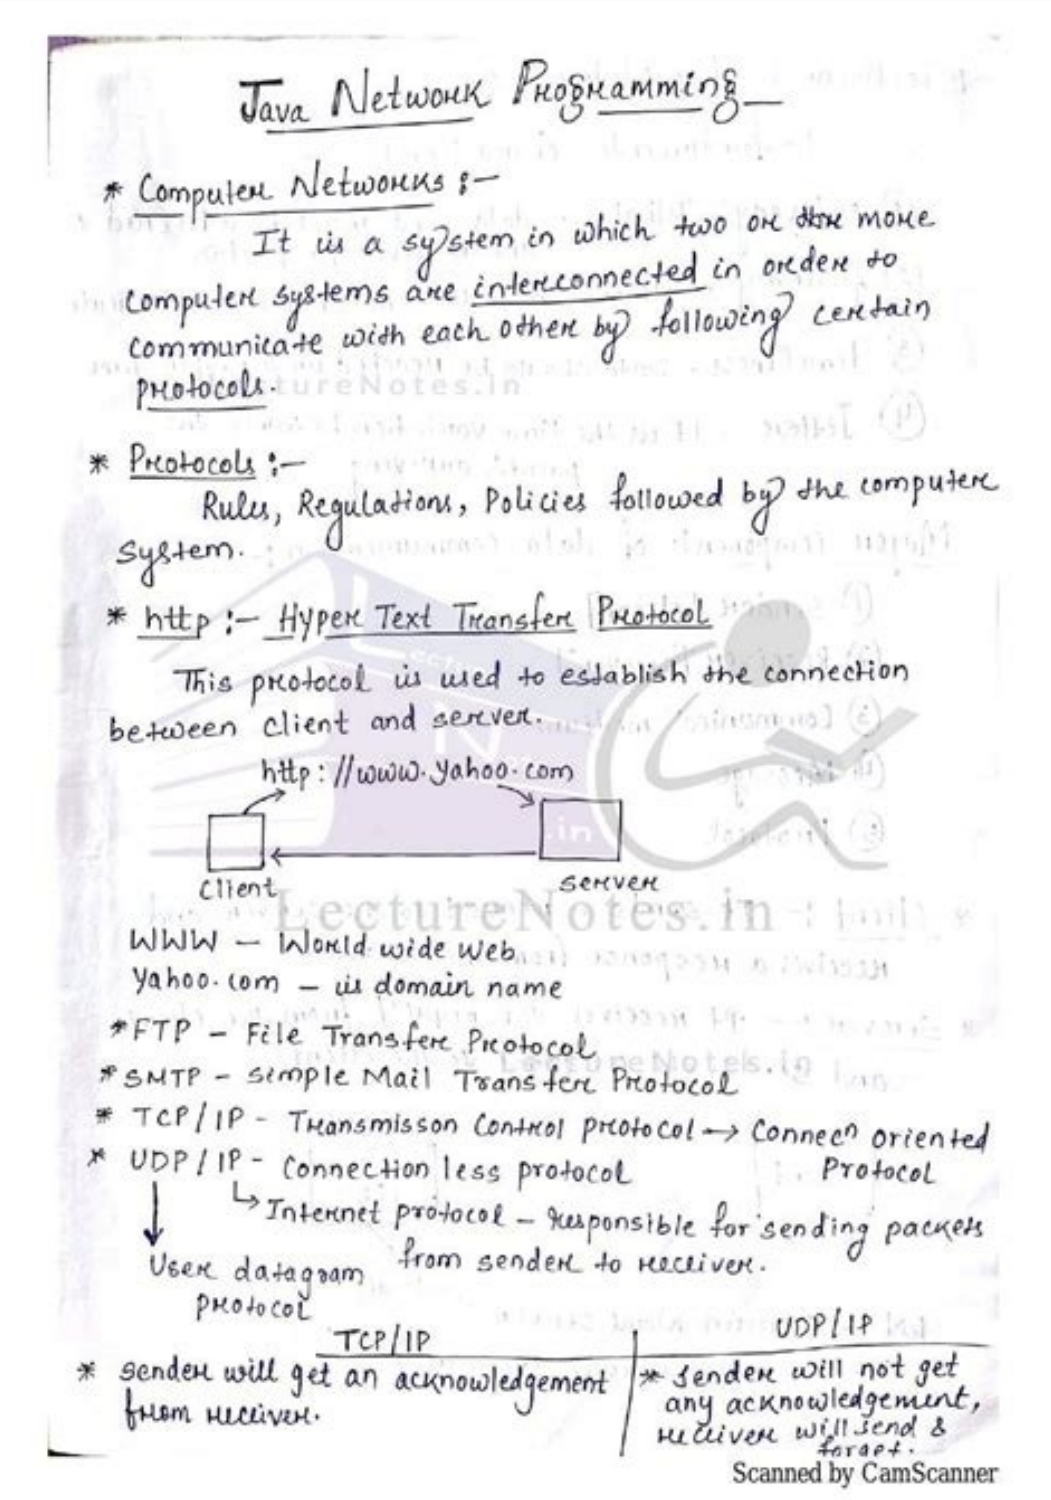 Java Network Programming
* Computer Networks :-
It is a system in which two or more
computer systems are interconnected in order to
communicate with each other by following certain
protocols.
LectureNotes.in
* Protocols :-
Rules, Regulations, Policies followed by the computer
system.
* http :- Hyper Text Transfer Protocol
This protocol is used to establish the connection
between client and server.
http://www.yahoo.com
Client
server
LectureNotes.in
WWW - World wide web
Yahoo.com - is domain name
* FTP - File Transfer Protocol
LectureNotes.in
* SMTP - Simple Mail Transfer Protocol
* TCP/IP - Transmisson Control protocol → Connecn oriented
Protocol
* UDP/IP - Connection less protocol
↳ Internet protocol - responsible for sending packets
from sender to receiver.
User datagram
protocol
TCP/IP
* sender will get an acknowledgement
from receiver.
UDP/IP
* sender will not get
any acknowledgement,
receiver will send &
forget.
Scanned by CamScanner